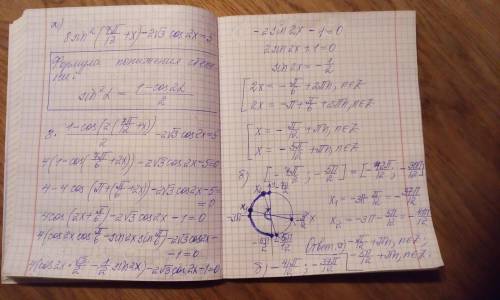 а)
8sin²(7π/12 + x) - 2√3 cos2x = 5
Формула понижения степени:
sin²α = (1-cos2α)/2
8 · (1-cos(2(7π/12 + x)))/2 - 2√3 cos2x = 5
4(1-cos(7π/6 + 2x)) - 2√3 cos2x - 5 = 0
4 - 4cos(π + (π/6 + 2x)) - 2√3 cos2x - 5 = 0
4cos(2x + π/6) - 2√3 cos2x - 1 = 0
4(cos2x cos π/6 - sin2x sin π/6) - 2√3 cos2x -
- 1 = 0
4(cos2x · √3/2 - 1/2 sin2x) - 2√3 cos2x - 1 = 0
-2sin2x - 1 = 0
2sin2x + 1 = 0
sin2x = -1/2
2x = -π/6 + 2πn, n∈Z
2x = -π + π/6 + 2πn, n∈Z
x = -π/12 + πn, n∈Z
x = -5π/12 + πn, n∈Z
x₁ = -3π - π/12 = -37π/12
x₂ = -3π - 5π/12 = -41π/12